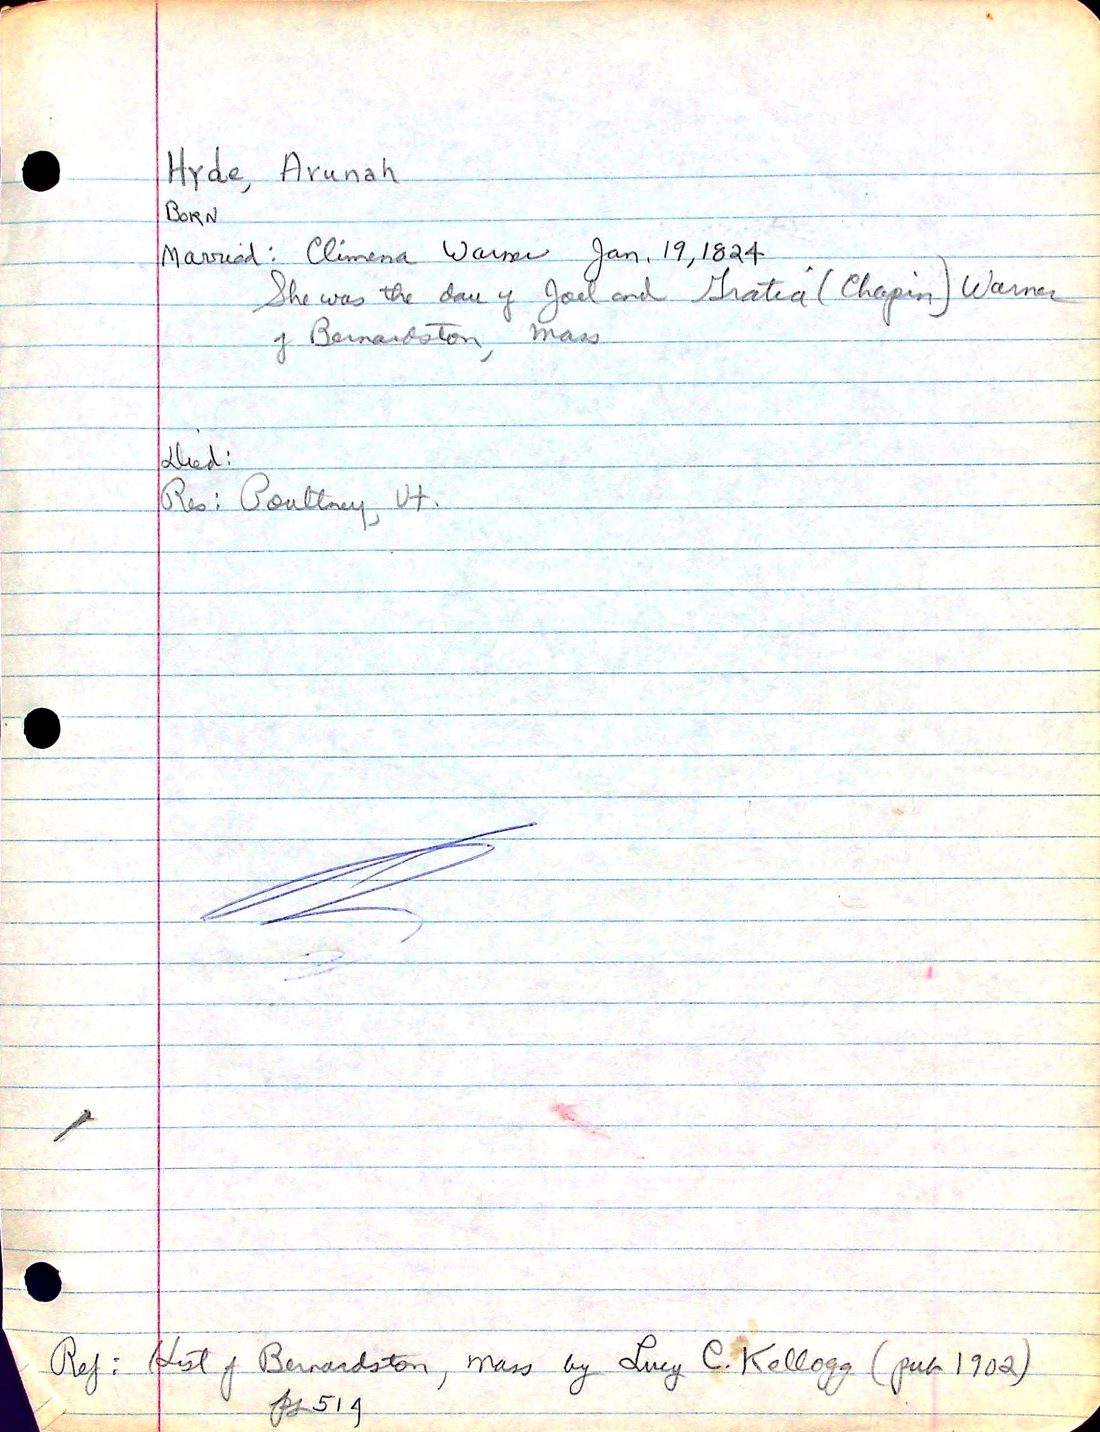 Hyde, Arunah
BORN
Married: Climena Warner Jan. 19, 1824
She was the dau of Joel and Gratia (Chapin) Warner
of Bernardston, Mass
Died:
Res: Poultney, Vt.
Ref: Hist of Bernardston, Mass by Lucy C. Kellogg (pub 1902)
pg 519